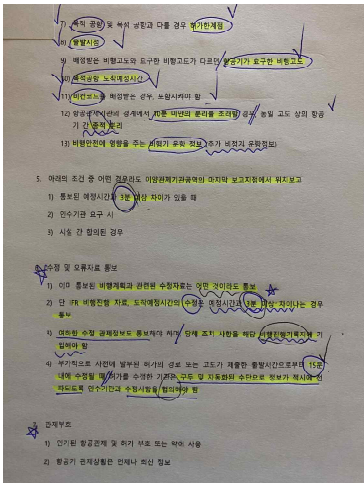 7) 목적 공항이 목적 공항과 다를 경우 허가한계점
8) 출발시점
9) 배정받은 비행고도와 요구한 비행고도가 다르면 항공기가 요구한 비행고도
10) 목적공항 도착예정시간
11) 비컨코드를 배정받은 경우, 포함시켜야 함
12) 항공관제기관의 경계에서 10분 미만의 분리를 초래할 경우 동일 고도 상의 항공
기 간 종적 분리
13) 비행안전에 영향을 주는 비행기 운항 정보 (추가 비정기 운항정보)
5. 아래의 조건 중 어떤 경우라도 이양관제기관공역의 마지막 보고지점에서 위치보고
1) 통보된 예정시간과 3분 이상 차이가 있을 때
2) 인수기관 요구 시
3) 시설 간 합의된 경우
수정 및 오류자료 통보
1) 이미 통보된 비행계획과 관련된 수정자료는 어떤 것이라도 통보
2) 단 IFR 비행진행 자료, 도착예정시간의 수정은 예정시간과 3분 이상 차이나는 경우
통보
3) 여하한 수정 관제정보도 통보해야 하며 당해 조치 사항을 해당 비행진행기록지에 기
입해야 함
4) 부가적으로 사전에 발부된 허가의 경로 또는 고도가 제출한 출발시간으로부터 15분
내에 수정될 때 허가를 수정한 기관은 구두 및 자동화된 수단으로 정보가 적시에 전
파되도록 인수기관과 수정사항을 협의해야 함
관제부호
1) 인가된 항공관제 및 허가 부호 또는 약어 사용
2) 항공기 관제상황은 언제나 최신 정보